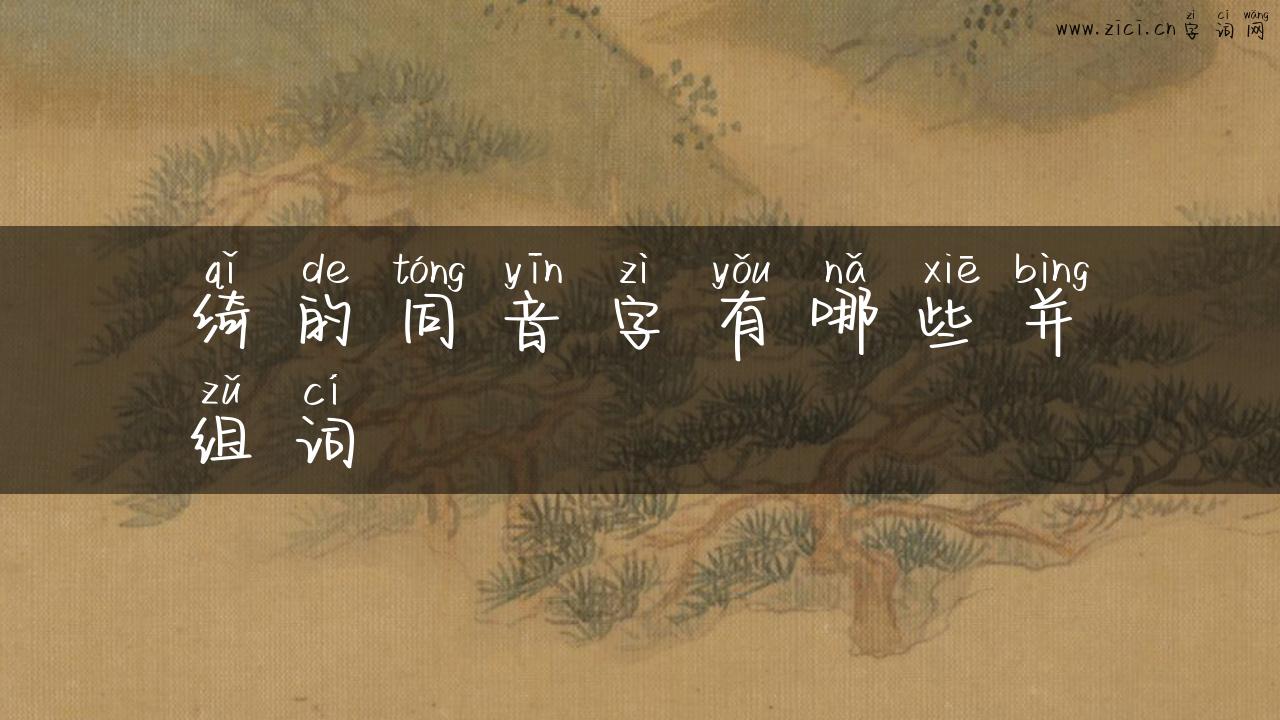 zì cí wǎng
www.zici.cn 字词网
qǐ de tóng yīn zì yǒu nǎ xiē bìng
绮的同音字有哪些并
zǔ cí
组词